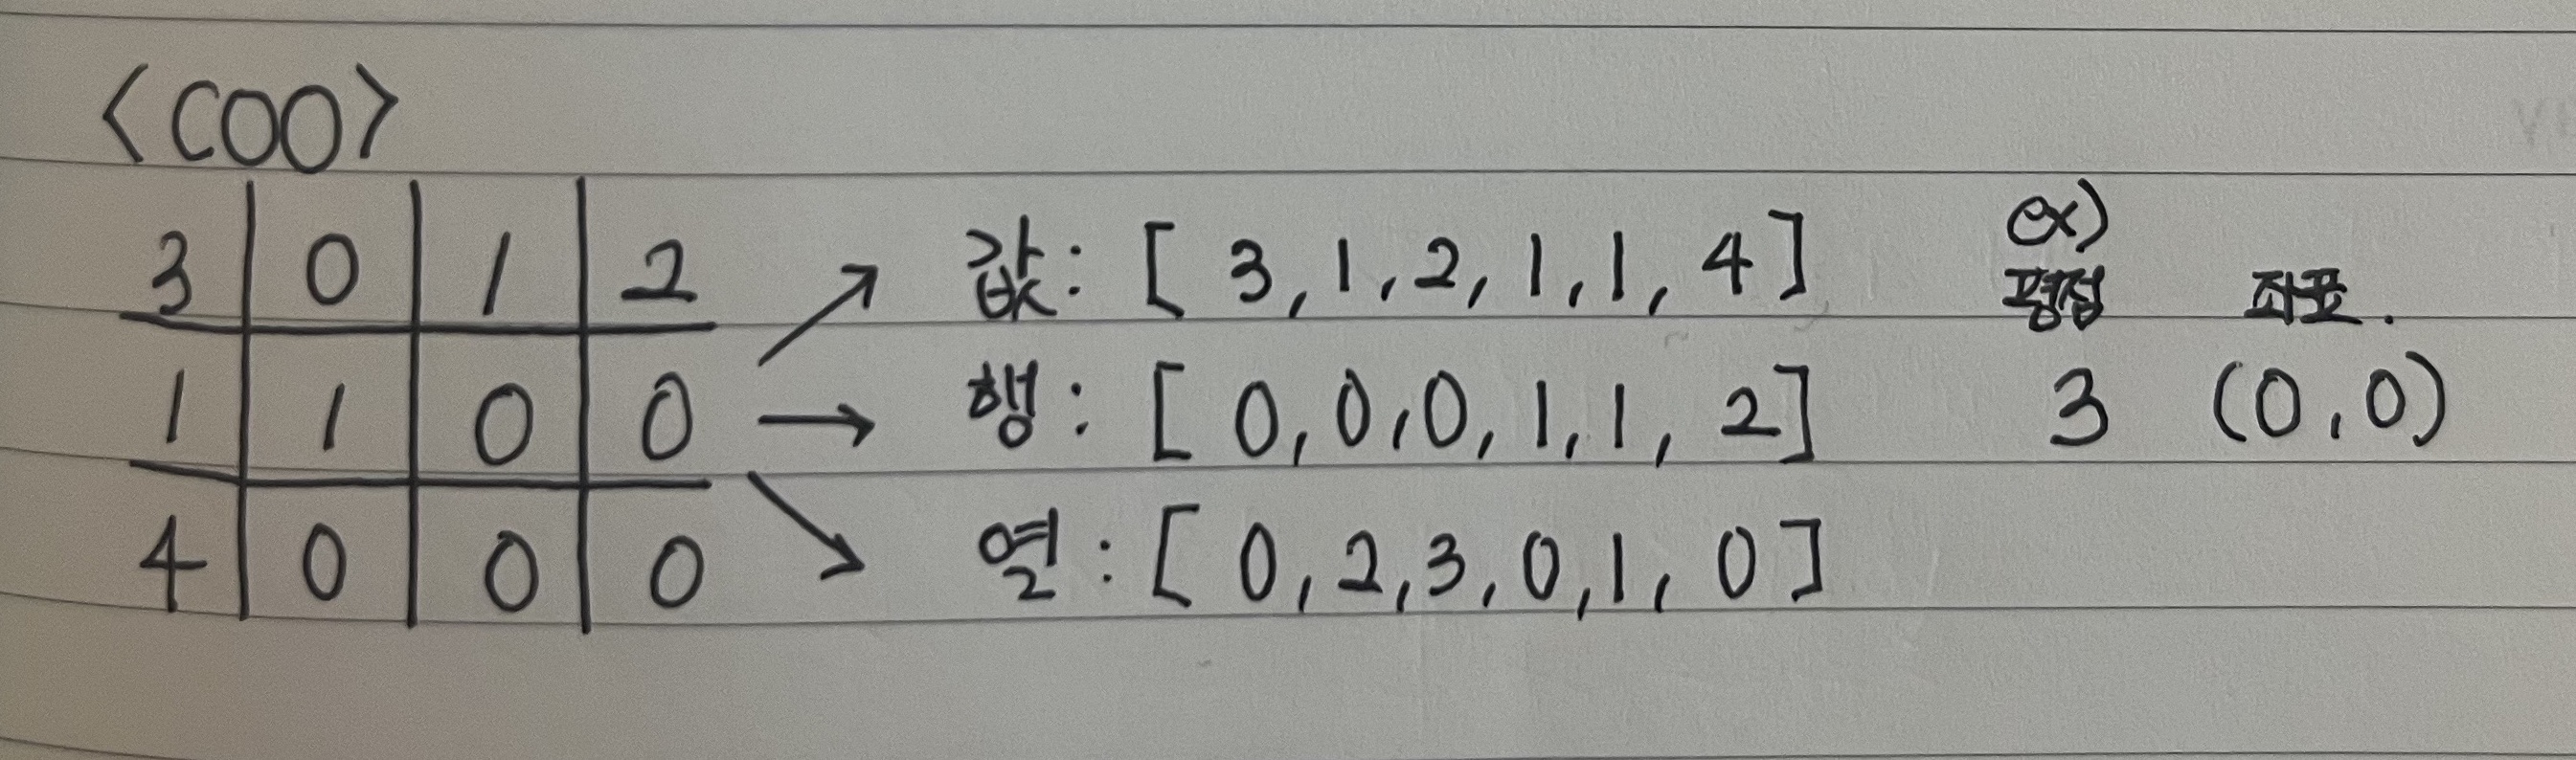 <COO>
3 0 1 2
1 1 0 0
4 0 0 0
값: [ 3, 1, 2, 1, 1, 4 ]
행: [ 0, 0, 0, 1, 1, 2 ]
열: [ 0, 2, 3, 0, 1, 0 ]
ex)
평점 좌표.
3 (0, 0)